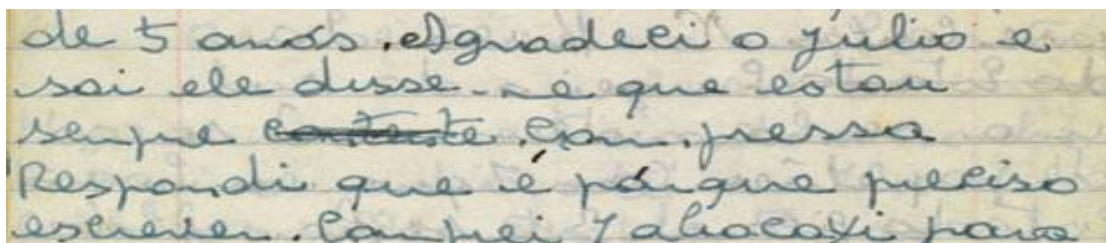 de 5 anos. Agradeci o Julio e
sai ele disse-me que estou
sempre contente. com. pressa
Respondi que é pórque preciso
escrever. Comprei 1 abacaxi para